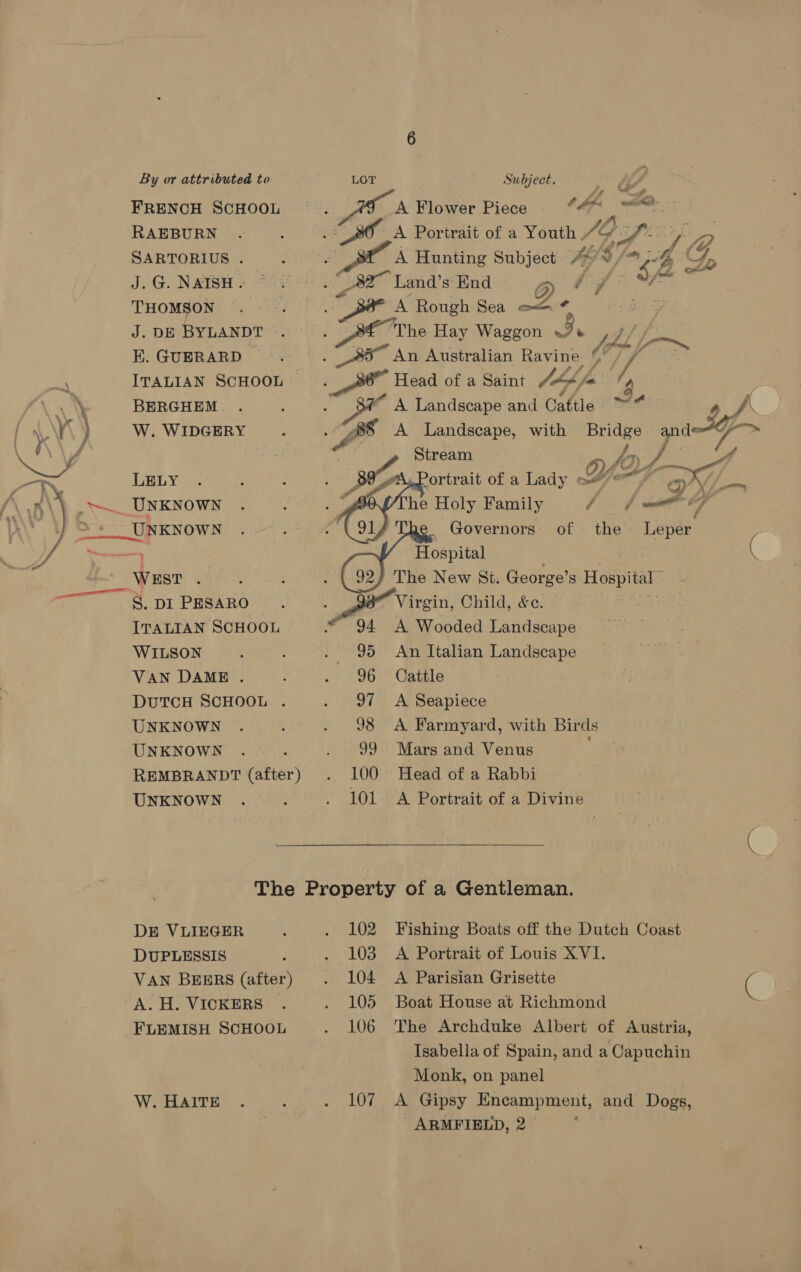 6
By or attributed to LOT Subject.
FRENCH SCHOOL . 79 A Flower Piece
RAEBURN . . 80 A Portrait of a Youth
SARTORIUS . . A Hunting Subject
J. G. NAISH . . 82 Land's End
THOMSON . . A Rough Sea
J. DE BYLANDT . . The Hay Waggon
E. GUERARD . . 85 An Australian Ravine
ITALIAN SCHOOL . 86 Head of a Saint
BERGHEM . . 87 A Landscape and Cattle
W. WIDGERY . . 88 A Landscape, with Bridge and
Stream
LELY . . . 89 A Portrait of a Lady
UNKNOWN . . The Holy Family
UNKNOWN . . 91 The Governors of the Leper
Hospital
WEST . . . 92 The New St. George's Hospital
S. DI PESARO . . Virgin, Child, &c.
ITALIAN SCHOOL . 94 A Wooded Landscape
WILSON . . 95 An Italian Landscape
VAN DAME . . 96 Cattle
DUTCH SCHOOL . . 97 A Seapiece
UNKNOWN . . 98 A Farmyard, with Birds
UNKNOWN . . 99 Mars and Venus
REMBRANDT (after) . 100 Head of a Rabbi
UNKNOWN . . 101 A Portrait of a Divine
The Property of a Gentleman.
DE VLIEGER . . 102 Fishing Boats off the Dutch Coast
DUPLESSIS . . 103 A Portrait of Louis XVI.
VAN BEERS (after) . 104 A Parisian Grisette
A. H. VICKERS . . 105 Boat House at Richmond
FLEMISH SCHOOL . 106 The Archduke Albert of Austria,
Isabella of Spain, and a Capuchin
Monk, on panel
W. HAITE . . . 107 A Gipsy Encampment, and Dogs,
ARMFIELD, 2